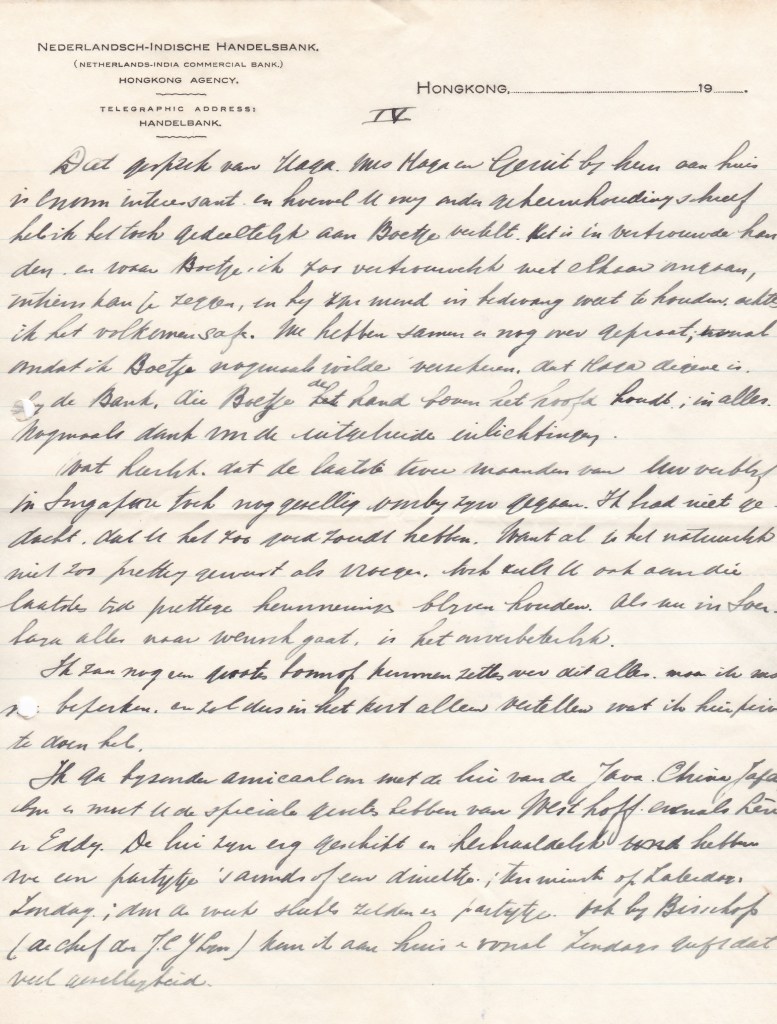 NEDERLANDSCH-INDISCHE HANDELSBANK.
(NETHERLANDS-INDIA COMMERCIAL BANK.)
HONGKONG AGENCY.
TELEGRAPHIC ADDRESS:
HANDELBANK.
HONGKONG, 19 .
IV
Dat gesprek van Haga. Mrs Haga en Gerrit by hem aan huis
is enorm interessant. en hoewel U my onder geheimhouding schreef
heb ik het toch gedeeltelyk aan Boetje vertelt. Het is in vertrouwde han
den. en waar Boetje & ik zoo vertrouwelyk met elkaar omgaan,
intiem kan je zeggen, en hy zyn mond in bedwang weet te houden. achtte
ik het volkomen safe. We hebben samen er nog over gepraat; vooral
omdat ik Boetje nogmaals wilde verzekeren. dat Haga degene is.
by de Bank, die Boetje de hand boven het hoofd houdt; in alles.
Nogmaals dank voor de uitgebreide inlichtingen.
Wat heerlyk. dat de laatste twee maanden van Uw verblyf
in Singapore toch nog gezellig voorby zyn gegaan. Ik had niet ge-
dacht. dat U het zoo goed zoudt hebben. Want al is het natuurlyk
niet zoo prettig geweest als vroeger. toch zult U ook aan die
laatste tyd prettige herinneringen blyven houden. Als nu in Soer-
baya alles naar wensch gaat, is het onverbeterlyk.
Ik zou nog een groote boom op kunnen zetten over dit alles. maar ik
beperken. en zal dus in het kort alleen vertellen wat ik hier
te doen heb.
Ik ga byzonder amicaal om met de lui van de Java. China Japan
Lyn er moet U de speciale groeten hebben van Westhoff. evenals
en Eddy. De lui zyn erg geschikt en herhaaldelyk hebben
we een partytje 's avonds of een dineetje; tenminste op Zaterdag
Zondag; door de week slechts zelden een partytje. Ook by Bisschop
(de chef der J.C.J Lyn) kom ik aan huis & vooral Zondags geeft dat
veel gezelligheid.